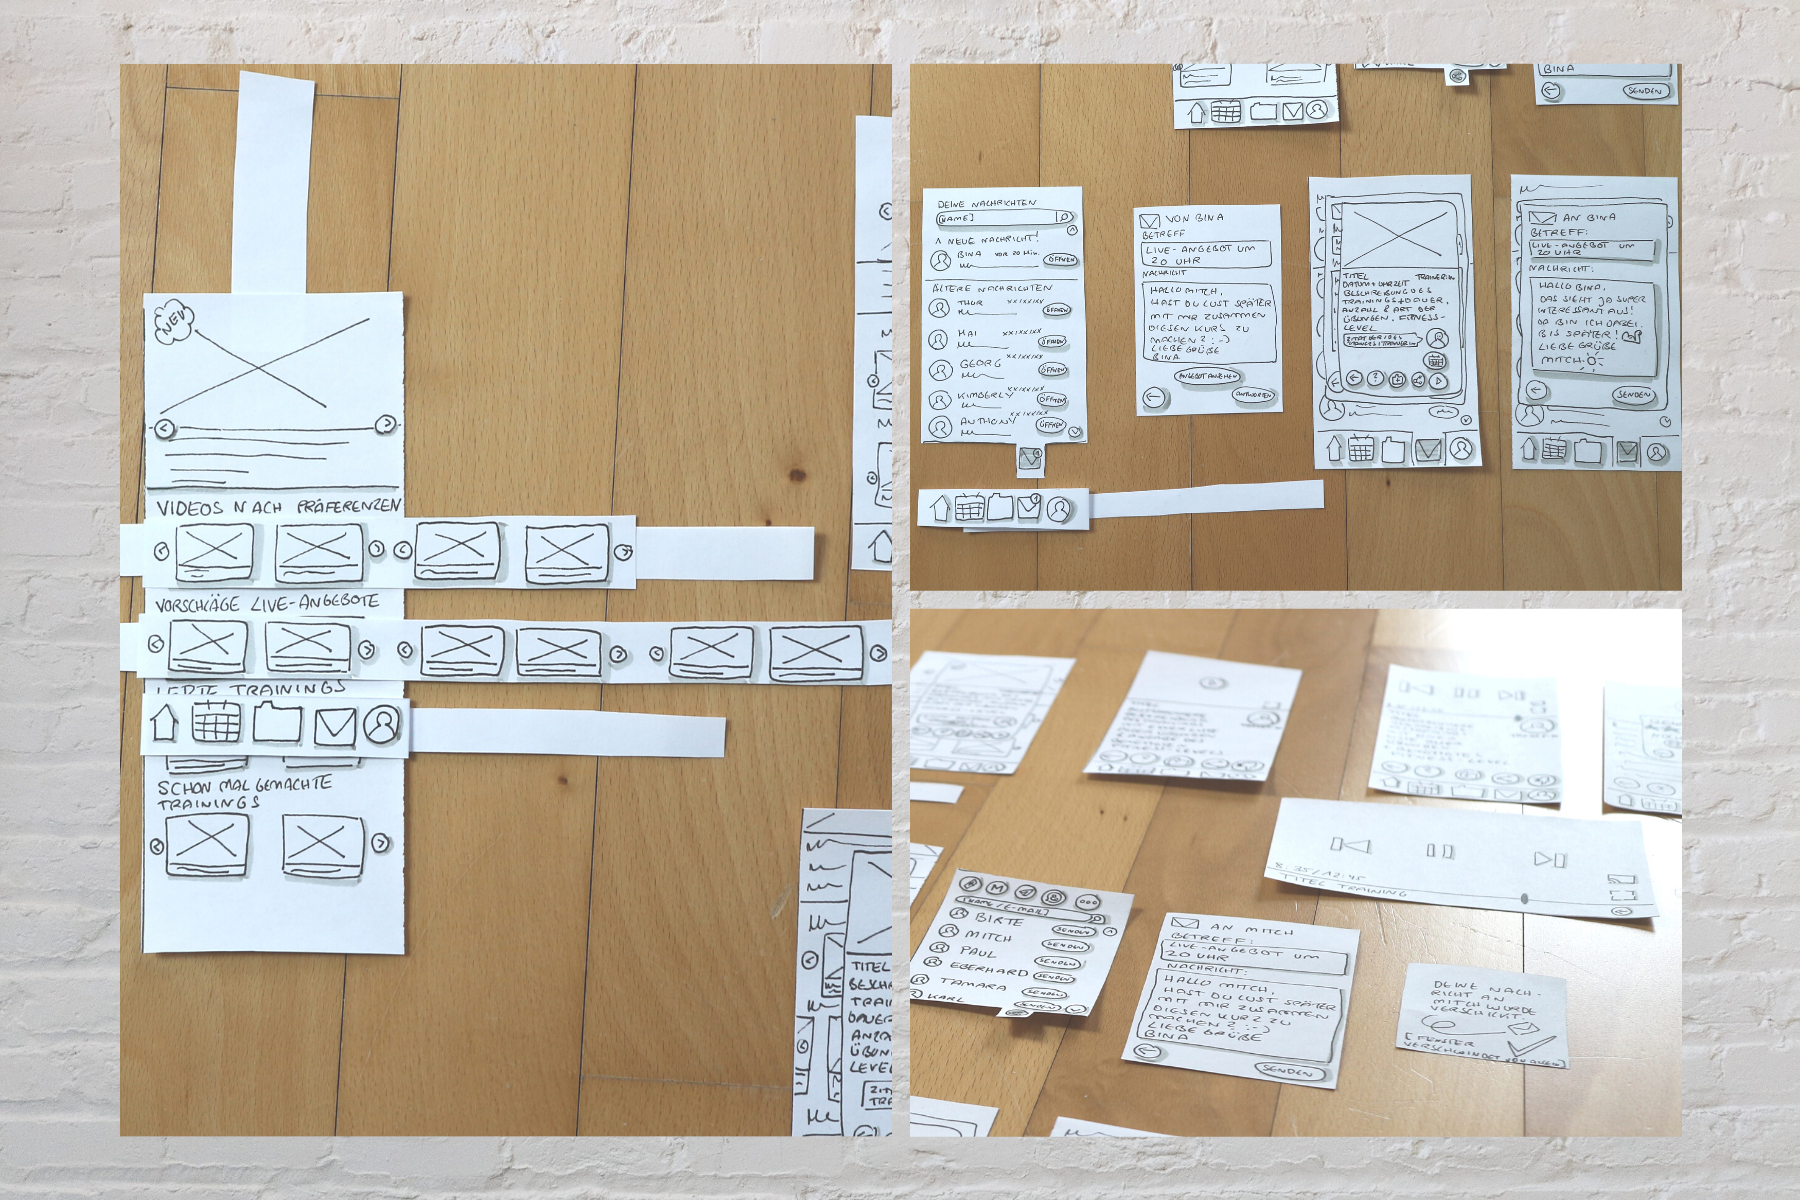 NEU
VIDEOS NACH PRÄFERENZEN
VORSCHLÄGE LIVE-ANGEBOTE
TRAININGS
SCHON MAL GEMACHTE
TRAININGS
TITEL
LEVEL
BINA
SENDEN
DEINE NACHRICHTEN
[NAME]
1 NEUE NACHRICHT!
BINA VOR 20 Min.
ÖFFNEN
ÄLTERE NACHRICHTEN
THOR XX|XX|XX
ÖFFNEN
KAI XX|XX|XX
ÖFFNEN
GEORG XX|XX|XX
ÖFFNEN
KIMBERLY XX|XX|XX
ÖFFNEN
ANTHONY XX|XX|XX
ÖFFNEN
VON BINA
BETREFF
LIVE-ANGEBOT UM
20 UHR
NACHRICHT
HALLO MITCH,
HAST DU LUST SPÄTER
MIT MIR ZUSAMMEN
DIESEN KURS ZU
MACHEN? :-)
LIEBE GRÜßE
BINA
ANGEBOT ANSEHEN
ANTWORTEN
TITEL TRAINER:IN
DATUM + UHRZEIT
BESCHREIBUNG DES
TRAININGS + DAUER,
ANZAHL & ART DER
ÜBUNGEN, FITNESS-
LEVEL
AN BINA
BETREFF:
LIVE-ANGEBOT UM
20 UHR
NACHRICHT:
HALLO BINA,
DAS SIEHT JA SUPER
INTERESSANT AUS!
DA BIN ICH DABEI.
BIS SPÄTER!
LIEBE GRÜßE
MITCH
SENDEN
8:35/12:45
TITEL TRAINING
[NAME/E-MAIL]
BIRTE SENDEN
MITCH SENDEN
PAUL SENDEN
EBERHARD SENDEN
TAMARA SENDEN
KARL SENDEN
AN MITCH
BETREFF:
LIVE-ANGEBOT UM
20 UHR
NACHRICHT:
HALLO MITCH,
HAST DU LUST SPÄTER
MIT MIR ZUSAMMEN
DIESEN KURZ ZU
MACHEN? :-)
LIEBE GRÜßE
BINA
SENDEN
DEINE NACH-
RICHT AN
MITCH WURDE
VERSCHICKT.
[FENSTER
VERSCHWINDET VON ALLEIN]